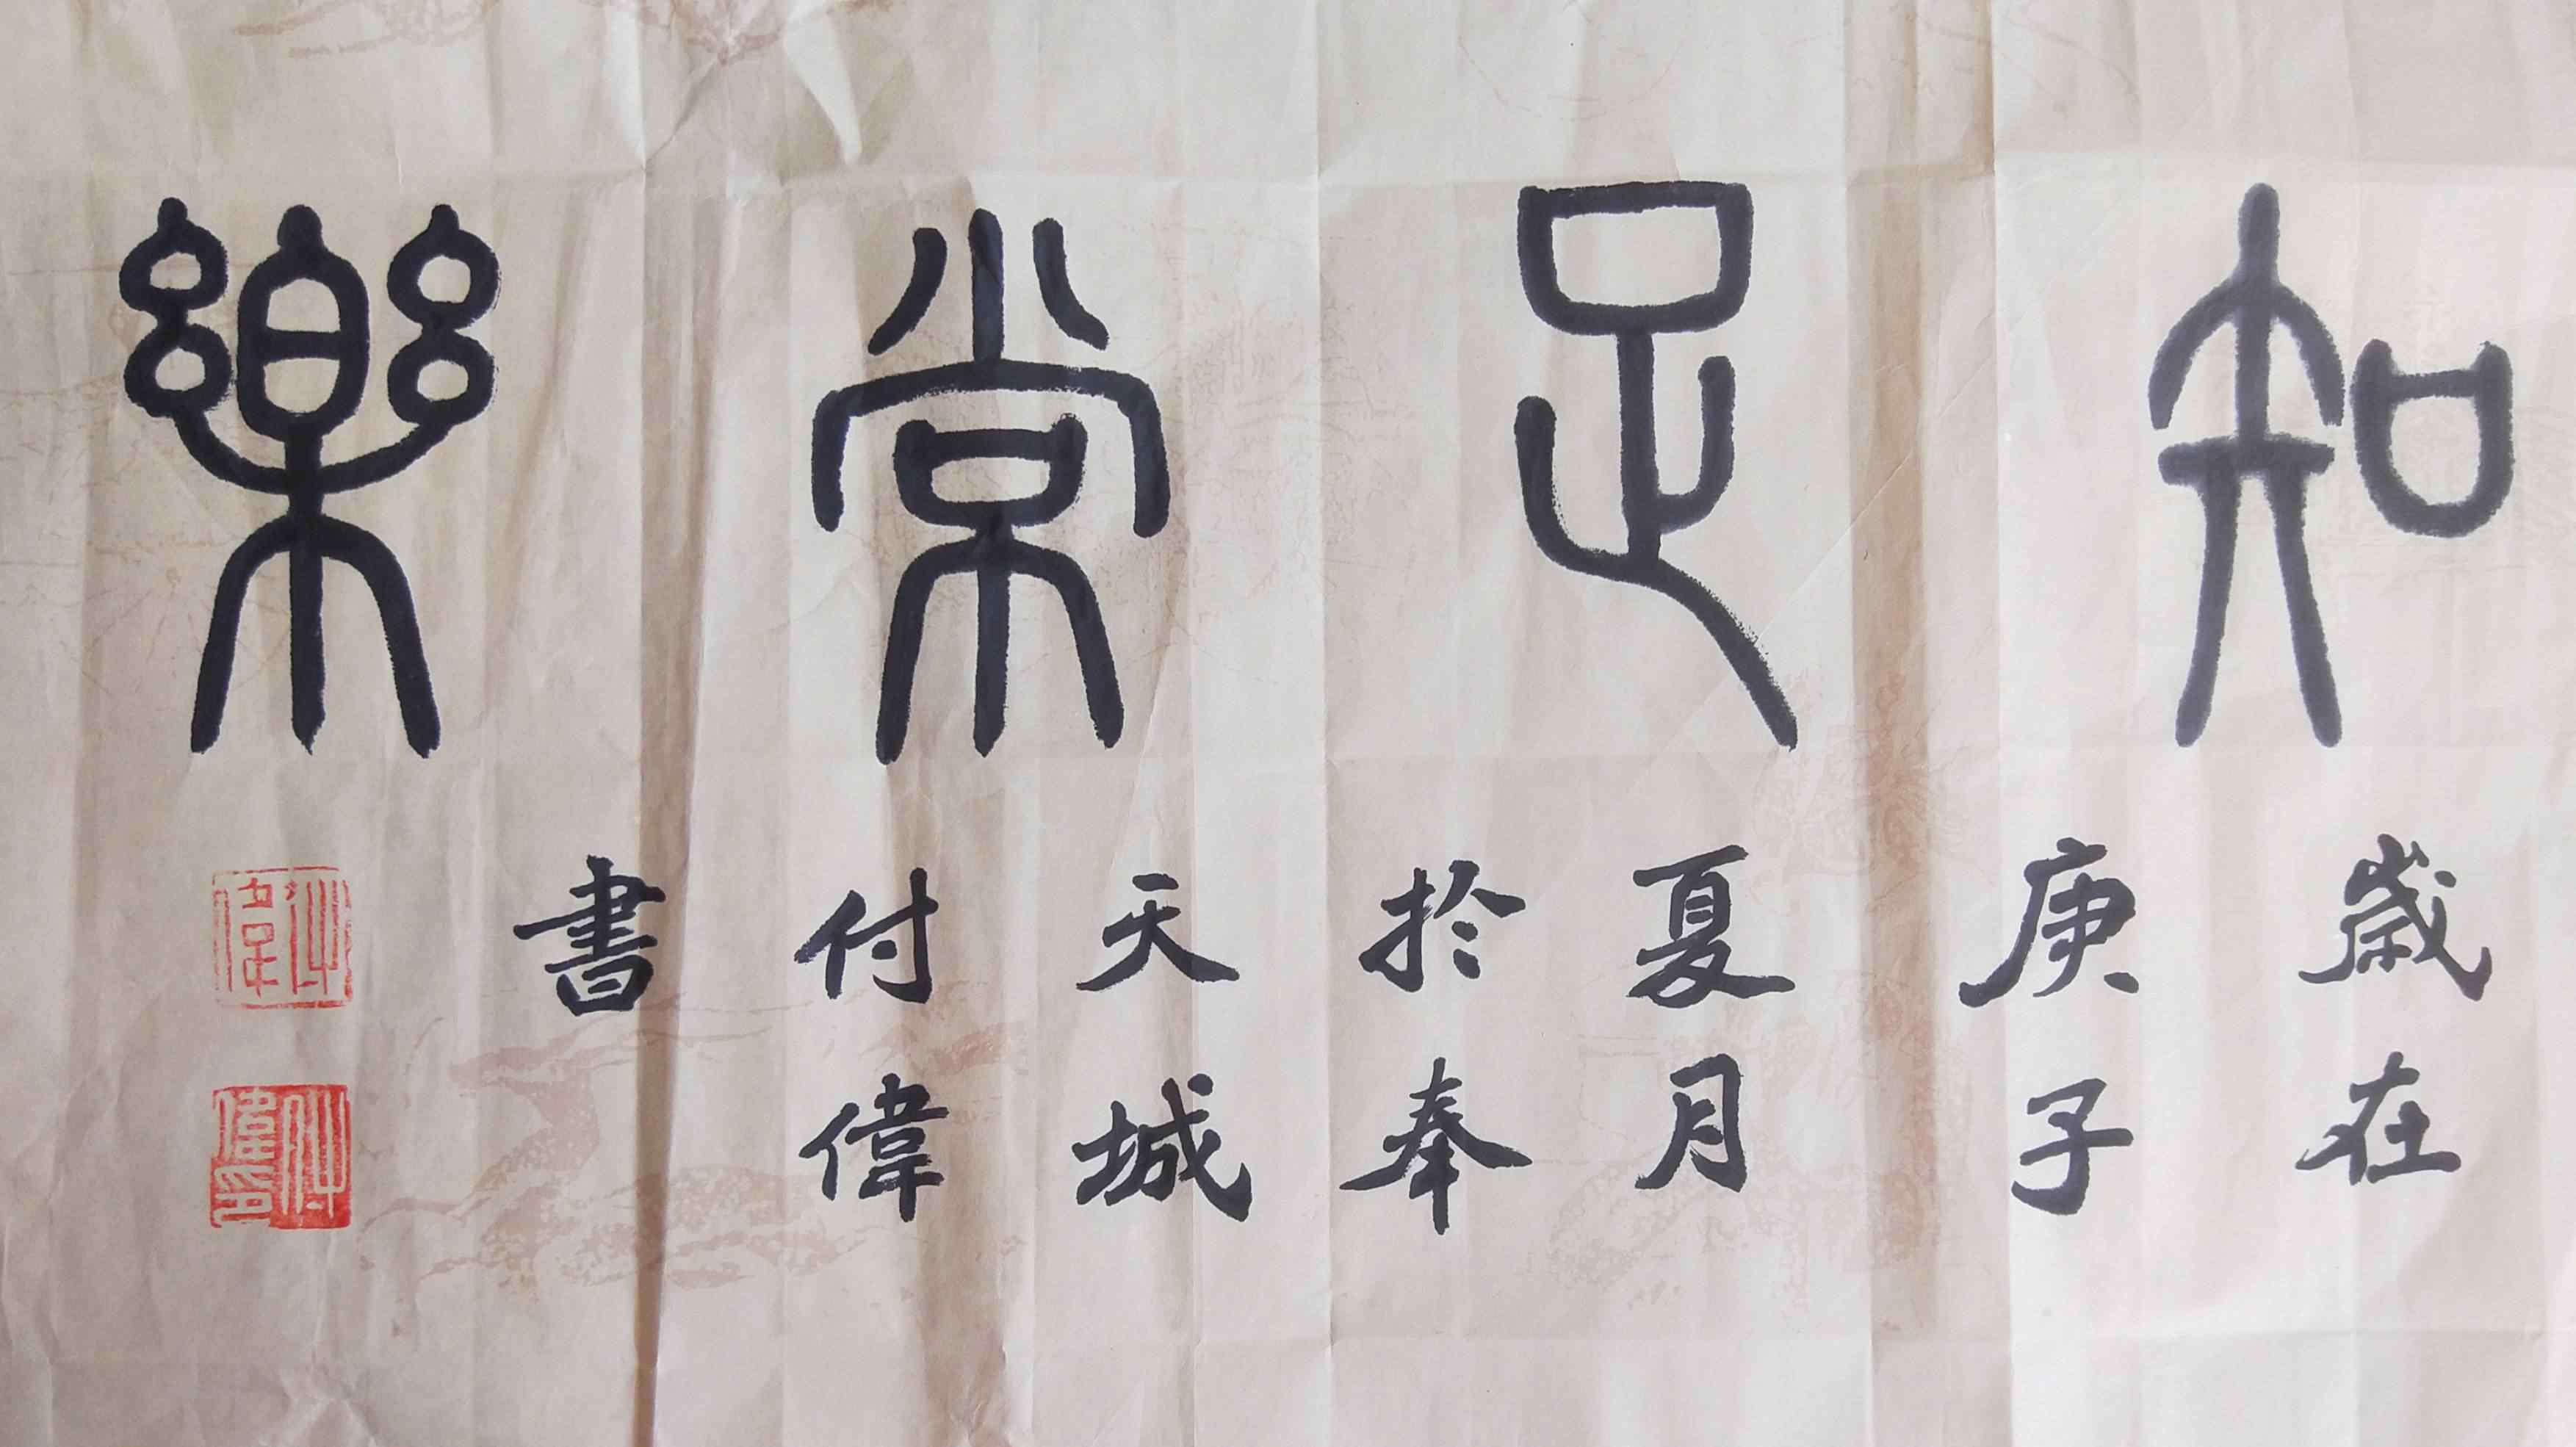 知足常樂
歲在
庚子
夏月
於奉
天城
付偉
書
付偉
付偉印